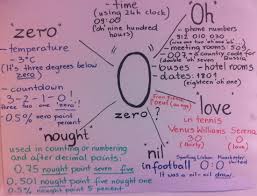 - time
(using 24h clock)
09:00
('oh' nine hundred
hours)
"Oh"
- phone numbers
- meeting rooms: 509
- buses - hotel rooms
- dates: 1801
(eighteen 'oh' one)
"zero"
- temperature
- 3°C
(It's three degrees below
zero)
- countdown
3-2-1-0!
three two one 'zero'!
- 0.5% zero point
percent
0
zero?
"love"
in tennis
Venus Williams Serena
30 0
(thirty love)
"nought"
used in counting or numbering
and after decimal points:
0.75 nought point seven five
0.501 nought point five nought one
0.5% nought point 5 percent
"nil"
in football 0:0
It was a nil-nil draw.